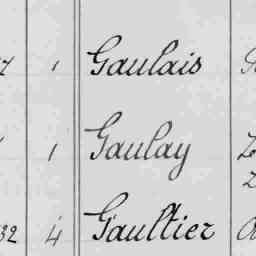 7 1 Gaulais
1 Gaulay
32 4 Gaultier